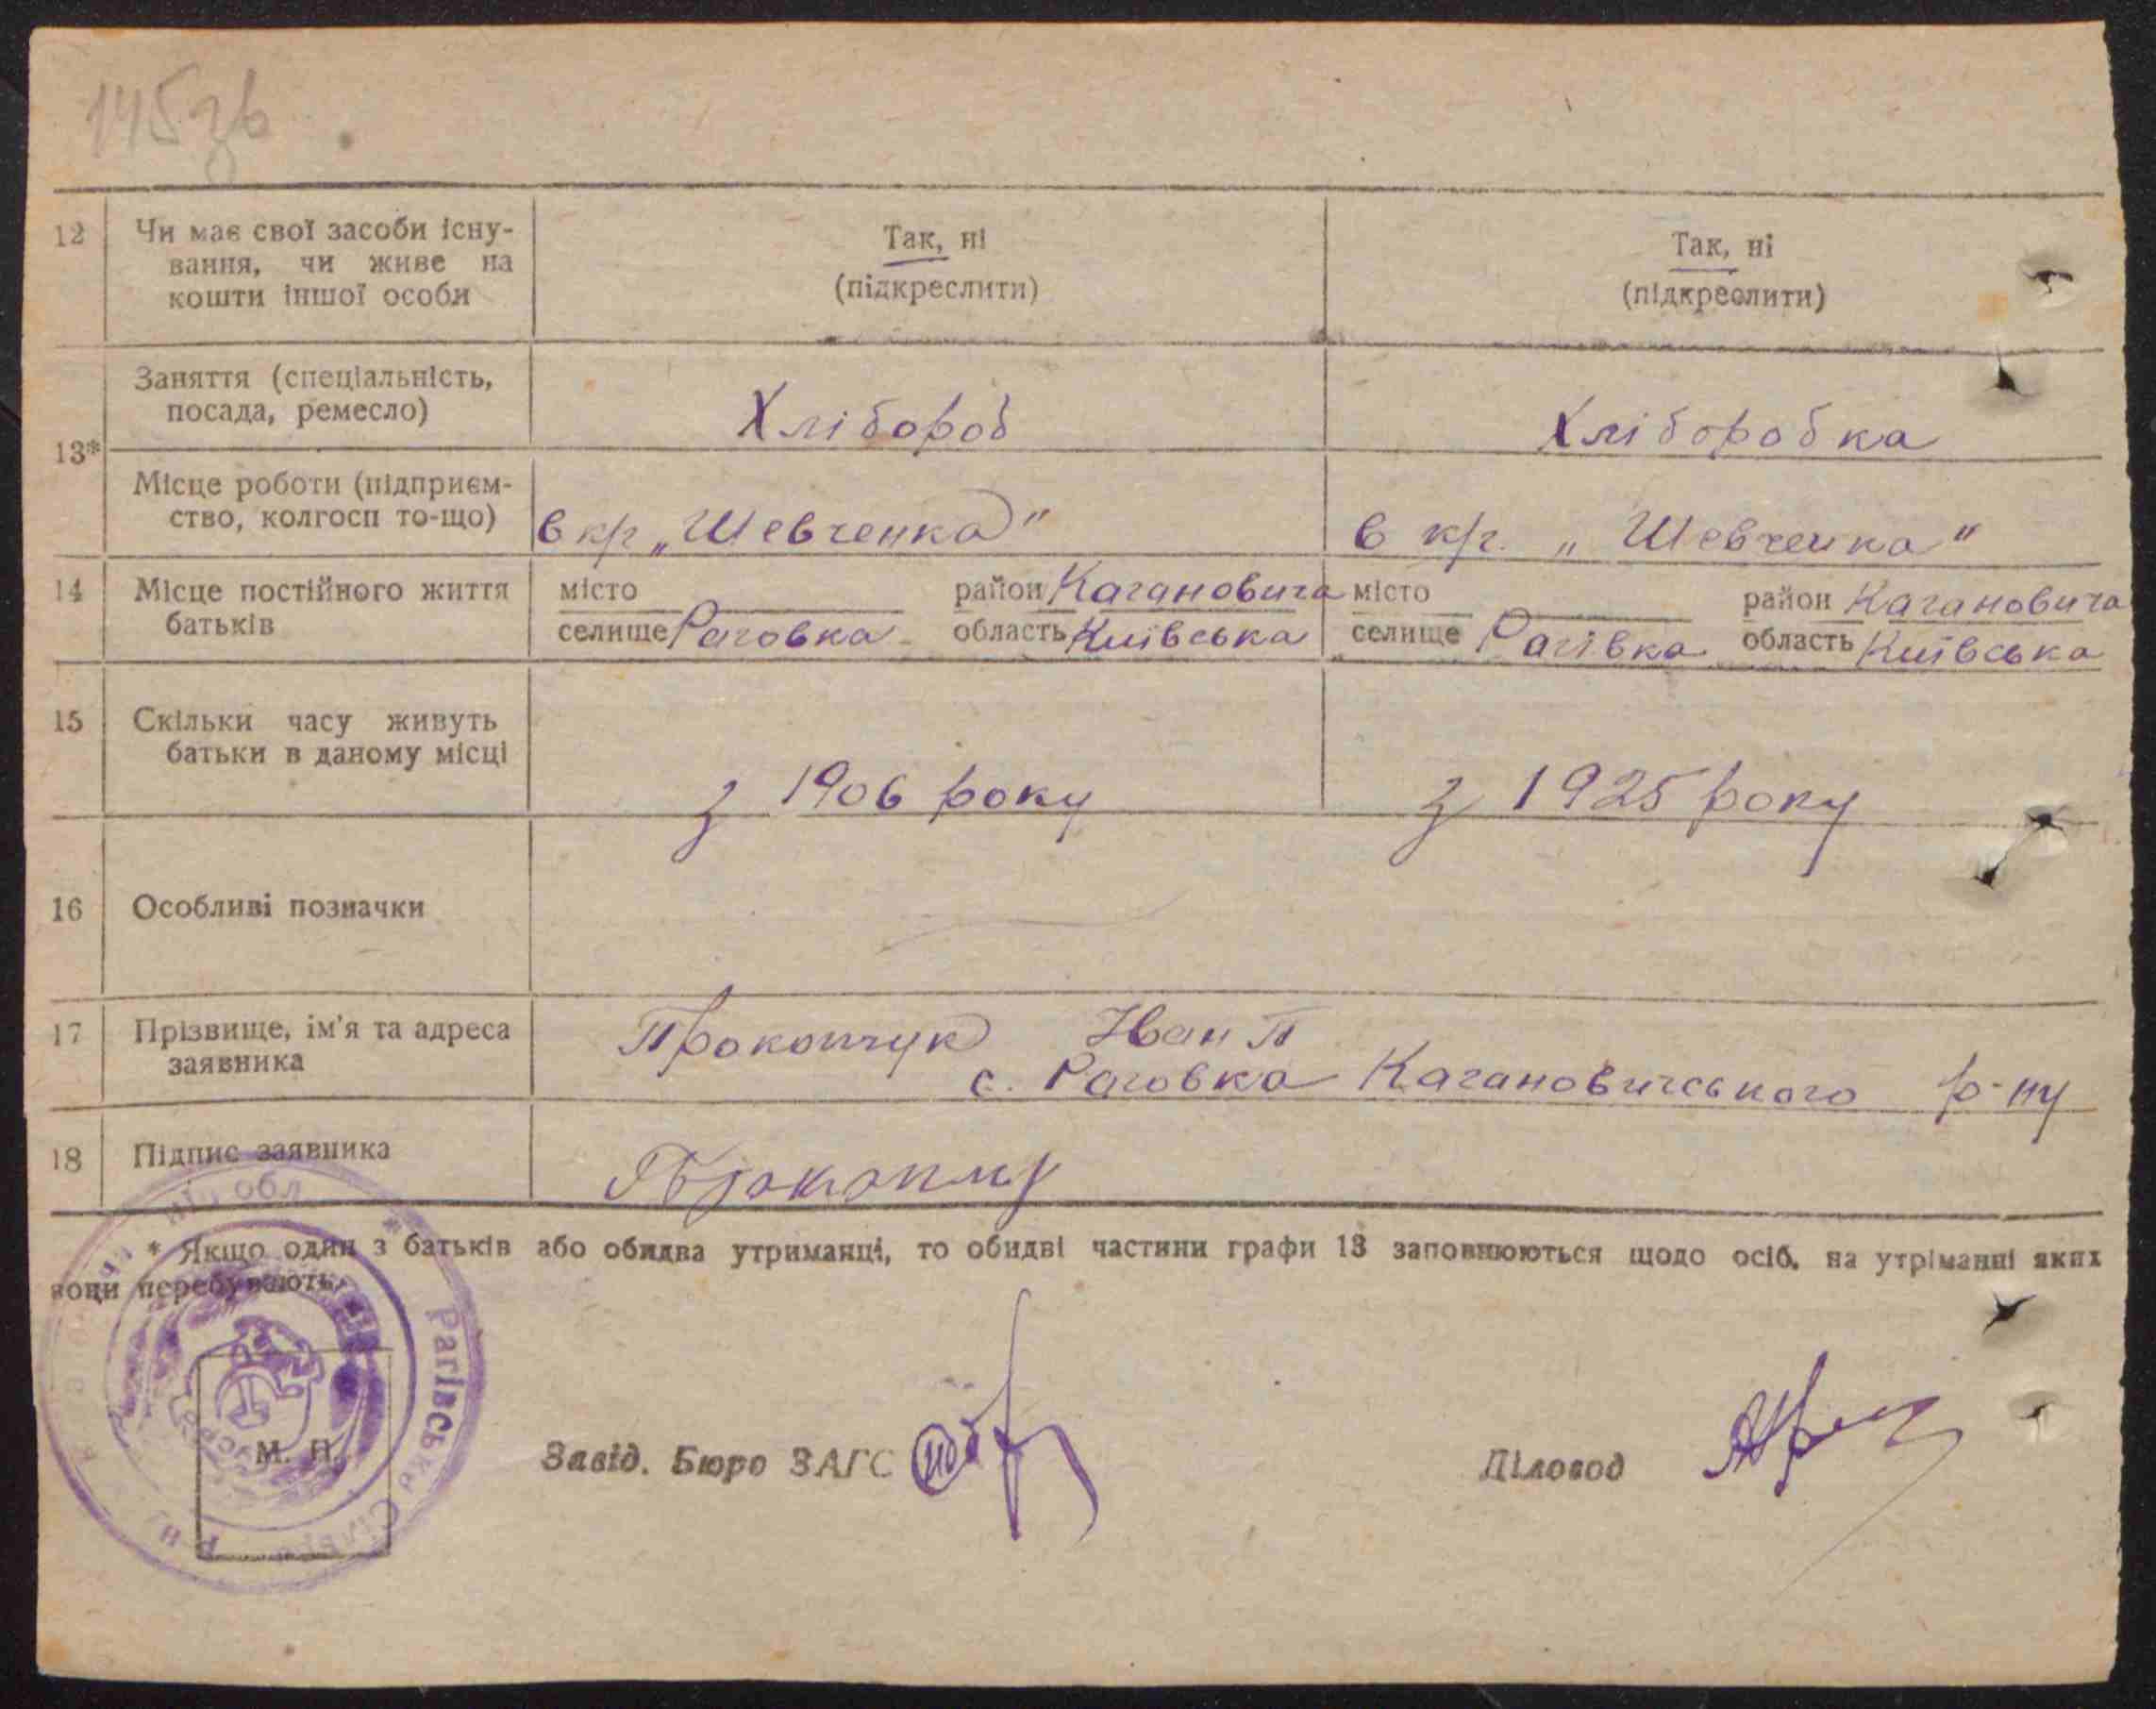 145зв
12 Чи має свої засоби існу-
вання, чи живе на
кошти іншої особи
Так, ні
(підкреслити)
Так, ні
(підкреслити)
13*
Заняття (спеціальність,
посада, ремесло)
Хлібороб
Хліборобка
Місце роботи (підприєм-
ство, колгосп то-що)
в кг „Шевченка"
в кг. „Шевченка"
14 Місце постійного життя
батьків
місто район Кагановича
селище Раговка область Київська
місто район Кагановича
селище Рагівка область Київська
15 Скільки часу живуть
батьки в даному місці
з 1906 року
з 1925 року
16 Особливі позначки
17 Прізвище, ім'я та адреса
заявника
Прокопчук Іван П
с. Раговка Кагановичського р-ну
18 Підпис заявника
* Якщо один з батьків або обидва утриманці, то обидві частини графи 13 заповнюються щодо осіб, на утріманні яких
вони перебувають.
обл
Рагівська Сільрада
М. П.
Завід. Бюро ЗАГС
Діловод